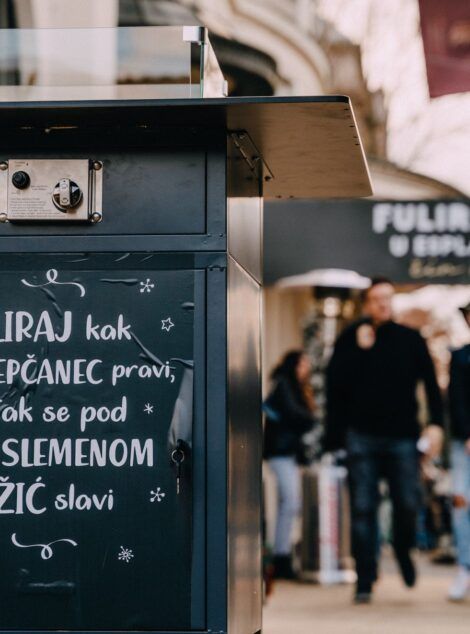 LIRAJ kak
EPČANEC pravi,
ak se pod
SLEMENOM
ŽIĆ slavi
FULIR
U ESPL